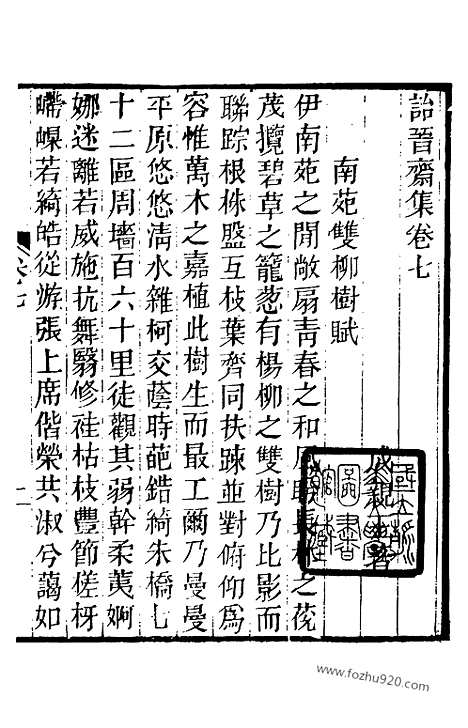 詒晉齋集卷七
成親王著
南苑雙柳樹賦
伊南苑之閒敞扇青春之和風眺長楊之葰
茂攬碧草之籠蔥有楊柳之雙樹乃比影而
聯踪根株盤互枝葉齊同扶踈並對俯仰爲
容惟萬木之嘉植此樹生而最工爾乃曼曼
平原悠悠淸水雜柯交蔭時葩錯綺朱橋七
十二區周墻百六十里徒觀其弱幹柔荑婀
娜迷離若威施抗舞翳修袿枯枝豐節槎枒
嵽嵲若綺皓從游張上席偕榮共淑兮藹如
卷七
一
www.fozhu920.com